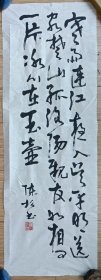 寒雨连江夜入吴平明送
客楚山孤洛阳亲友如相问
一片冰心在玉壶
陈 书